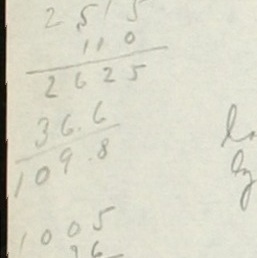 2515
110
2625
36.6
109.8
1005